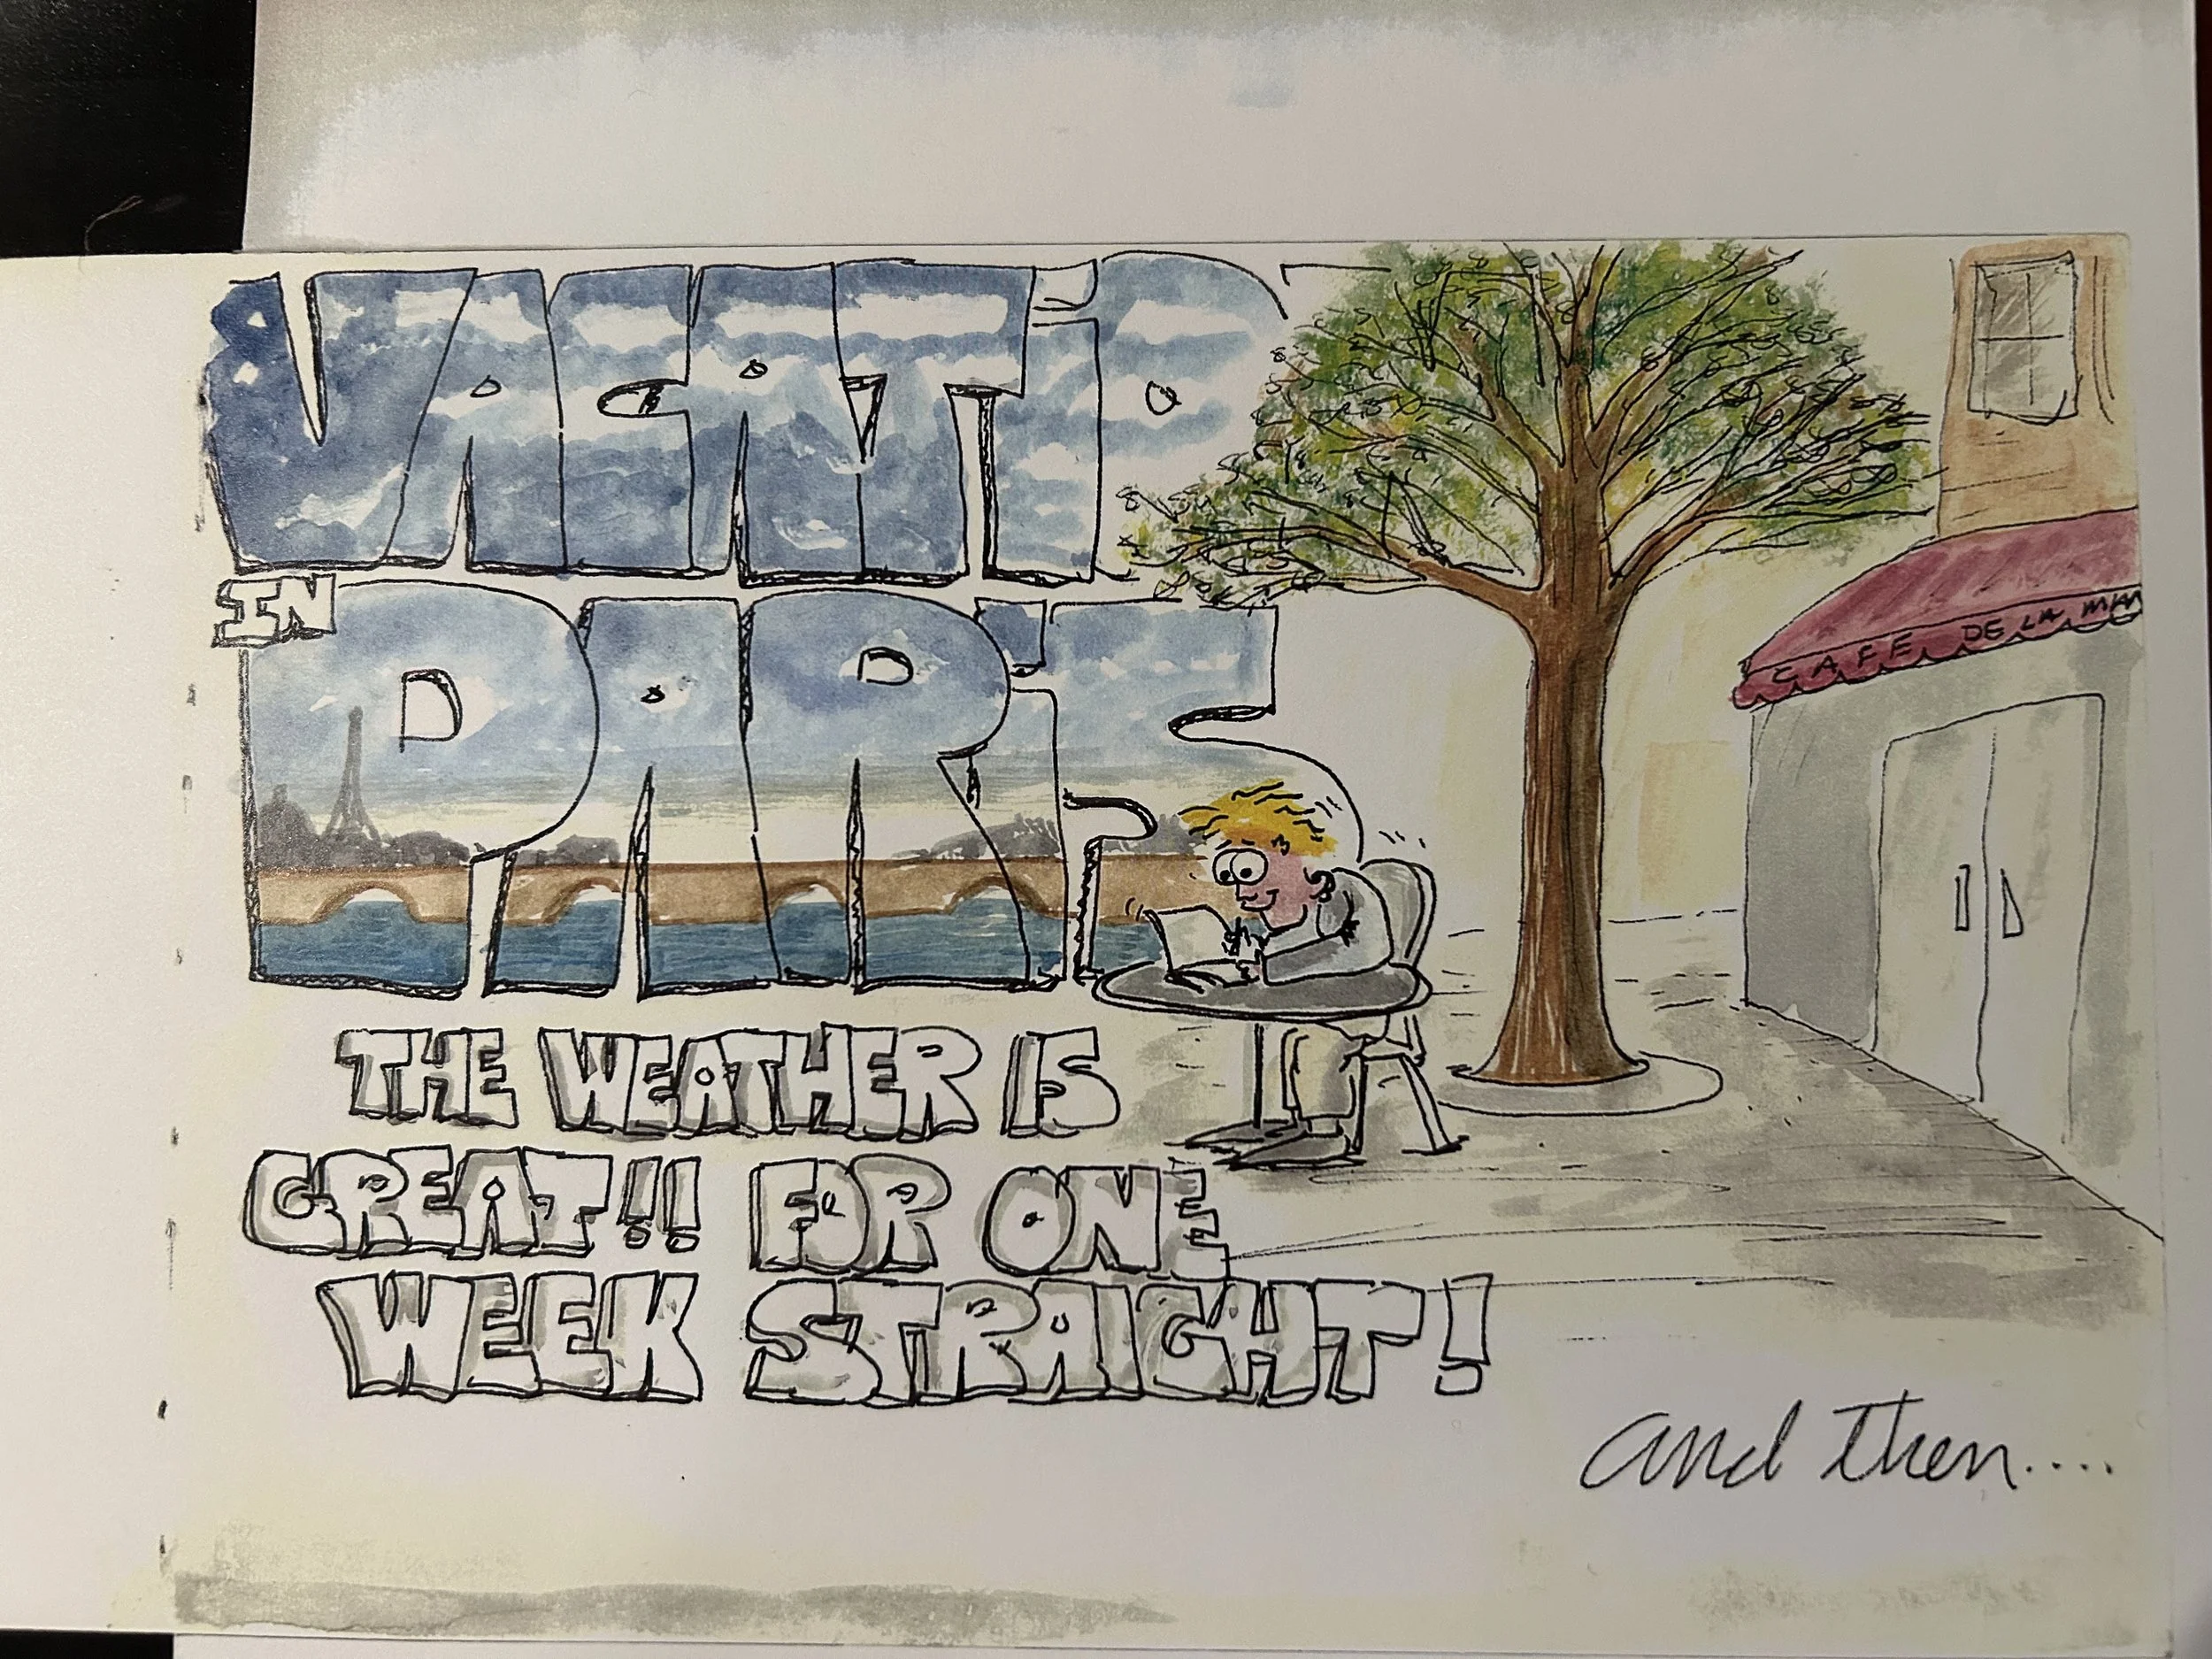 VACATIO
IN
PARIS
CAFE DE LA
THE WEATHER IS
GREAT!! FOR ONE
WEEK STRAIGHT!
and then....